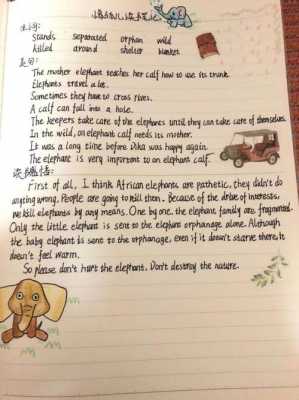 生词:
Stands separated orphan wild
killed around shelter blanket
美句:
The mother elephant teaches her calf how to use its trunk.
Elephants travel a lot.
Sometimes they have to cross rives.
A calf can fall into a hole.
The keepers take care of the elephants until they can take care of themselves.
In the wild, an elephant calf needs its mother.
It was a long time before Dika was happy again.
The elephant is very important to an elephant calf.
读后感悟:
First of all, I think African elephants are pathetic, they didn't do
anything wrong, People are going to kill them. Because of the drive of interests,
we kill elephants by any means. One by one, the elephant family are fragmented.
Only the little elephant is sent to the elephant orphanage alone. Although
the baby elephant is sent to the orphanage, even if it doesn't starve there, it
doesn't feel warm.
So please don't hurt the elephant. Don't destroy the nature.